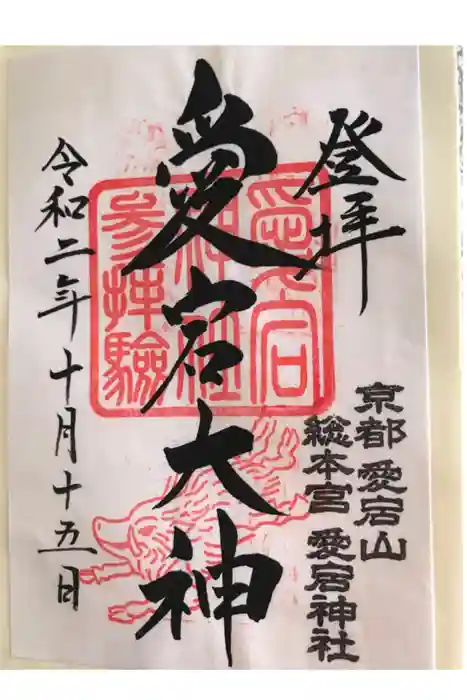 登拝
京都 愛宕山
総本宮 愛宕神社
愛宕大神
愛宕
神社
参拝験
令和二年十月十五日